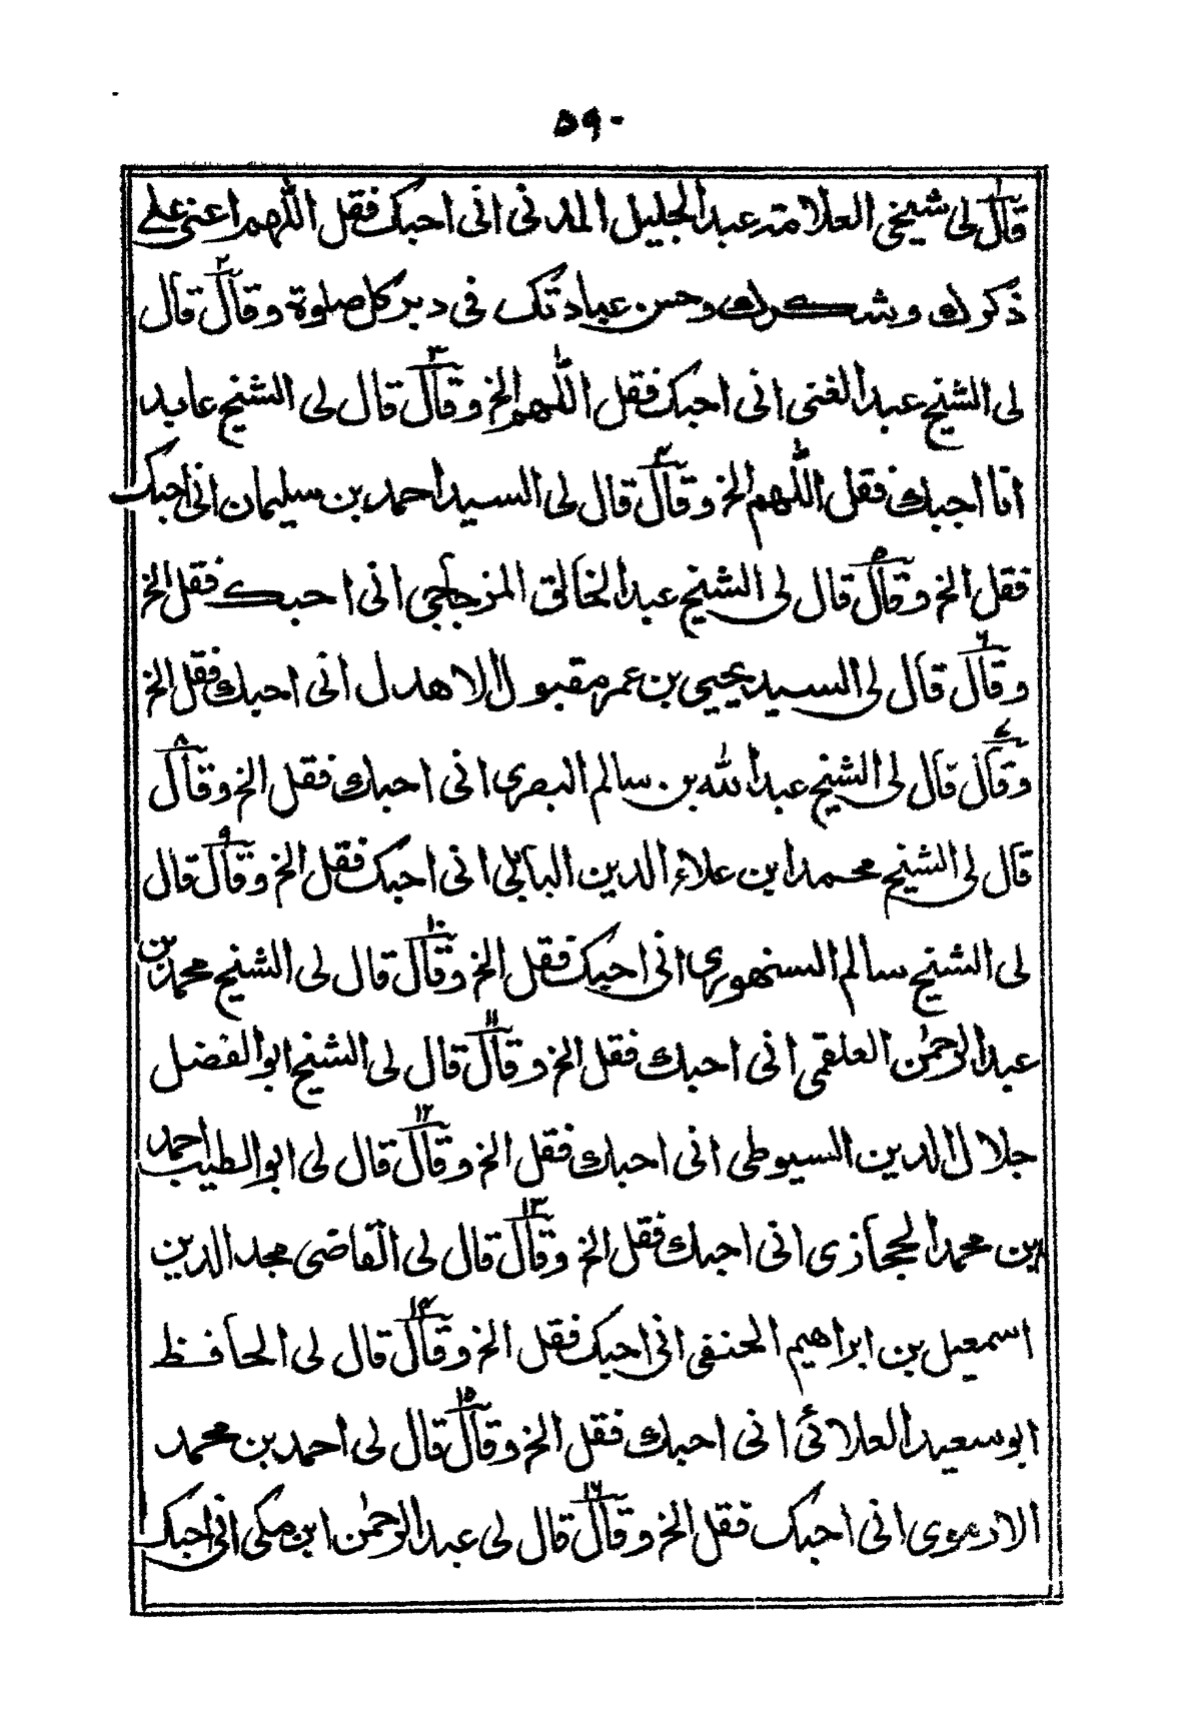 ۵۹۰
قال لی شیخی العلامۃ عبد الجلیل المدنی انی احبک فقل اللّٰهم اعنی علے
ذکرك وشکرك وحسن عبادتک فی دبر کل صلوۃ وقال ۲ قال
لی الشیخ عبد الغنی انی احبک فقل اللّٰهم الخ وقال ۳ قال لی الشیخ عابد
انا احبك فقل اللّٰهم الخ وقال ۴ قال لی السید احمد بن سلیمان انی احبک
فقل الخ وقال ۵ قال لی الشیخ عبد الخالق المزجاجی انی احبك فقل الخ
وقال ۶ قال لی السید یحیی بن عمر مقبول الاهدل انی احبك فقل الخ
وقال ۷ قال لی الشیخ عبد الله بن سالم البصری انی احبك فقل الخ وقال ۸
قال لی الشیخ محمد ابن علاء الدین البابلی انی احبک فقل الخ وقال ۹ قال
لی الشیخ سالم السنهوری انی احبک فقل الخ وقال ۱۰ قال لی الشیخ محمد بن
عبد الرحمٰن العلقمی انی احبك فقل الخ وقال ۱۱ قال لی الشیخ ابو الفضل
جلال الدین السیوطی انی احبك فقل الخ وقال ۱۲ قال لی ابو الطیب احمد
بن محمد الحجازی انی احبك فقل الخ وقال ۱۳ قال لی القاضی مجد الدین
اسمعیل بن ابراهیم الحنفی انی احبک فقل الخ وقال ۱۴ قال لی الحافظ
ابو سعید العلائی انی احبك فقل الخ وقال ۱۵ قال لی احمد بن محمد
الارموی انی احبک فقل الخ وقال ۱۶ قال لی عبد الرحمٰن ابن مکی انی احبک